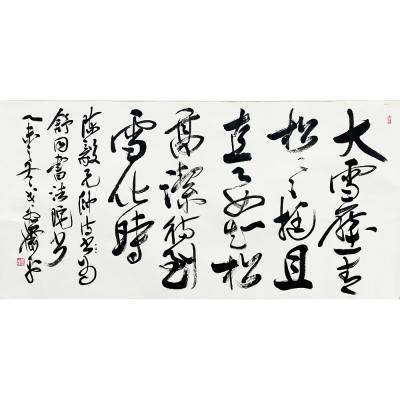 大雪壓青
松〻挺且
直要知松
高潔待到
雪化時
陳毅元帥詩
舒同書法